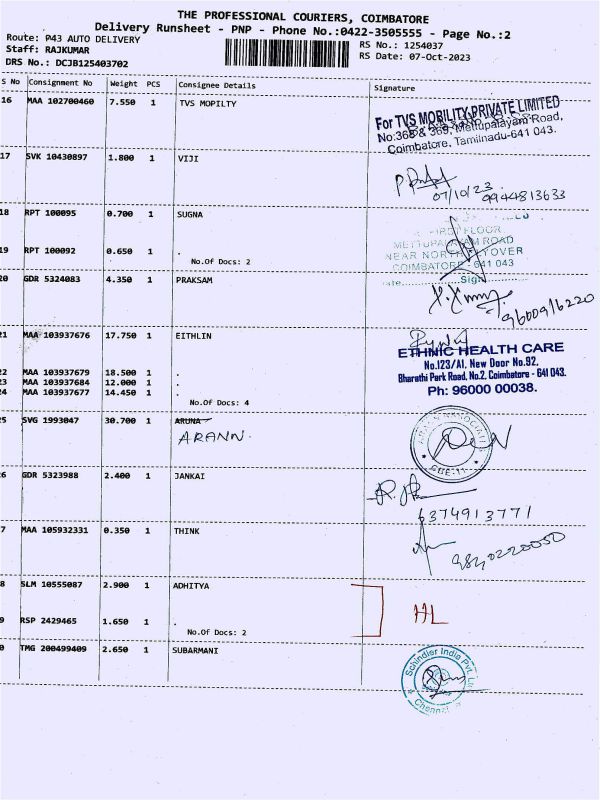 THE PROFESSIONAL COURIERS, COIMBATORE
Delivery Runsheet - PNP - Phone No.:0422-3505555 - Page No.:2
Route: P43 AUTO DELIVERY
RS No.: 1254037
Staff: RAJKUMAR
RS Date: 07-Oct-2023
DRS No.: DCJB125403702
S No Consignment No Weight PCS Consignee Details Signature
16 MAA 102700460 7.550 1 TVS MOPILTY
For TVS MOBILITY PRIVATE LIMITED
No:368 & 369, Mettupalayam Road,
Coimbatore, Tamilnadu-641 043.
17 SVK 10430897 1.800 1 VIJI
07/10/23
9944813633
18 RPT 100095 0.700 1 SUGNA
FIRST FLOOR
METTUPALAYAM ROAD
19 RPT 100092 0.650 1 .
NEAR NORTH FLYOVER
No.Of Docs: 2
COIMBATORE - 641 043
20 GDR 5324083 4.350 1 PRAKSAM
Sign
9600916220
21 MAA 103937676 17.750 1 EITHLIN
ETHNIC HEALTH CARE
No.123/A1, New Door No.92,
22 MAA 103937679 18.500 1 .
Bharathi Park Road, No.2, Coimbatore - 641 043.
23 MAA 103937684 12.000 1 .
Ph: 96000 00038.
24 MAA 103937677 14.450 1 .
No.Of Docs: 4
25 SVG 1993047 30.700 1 ARUNA
ARANN.
CBE-11
6 GDR 5323988 2.400 1 JANKAI
6374913771
7 MAA 105932331 0.350 1 THINK
9840220050
8 SLM 10555087 2.900 1 ADHITYA
HL
9 RSP 2429465 1.650 1 .
No.Of Docs: 2
0 TMG 200499409 2.650 1 SUBARMANI
Schindler India Pvt. Ltd
Chennai